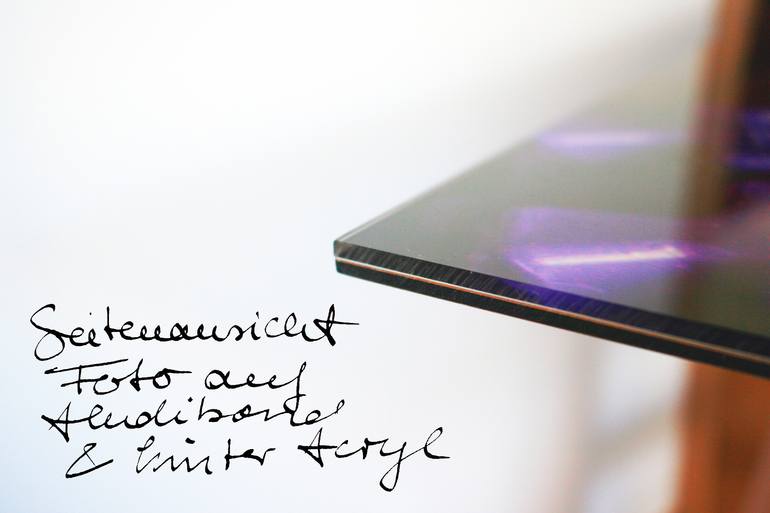 Seitenansicht
Foto auf
Aludibond
& hinter Acryl